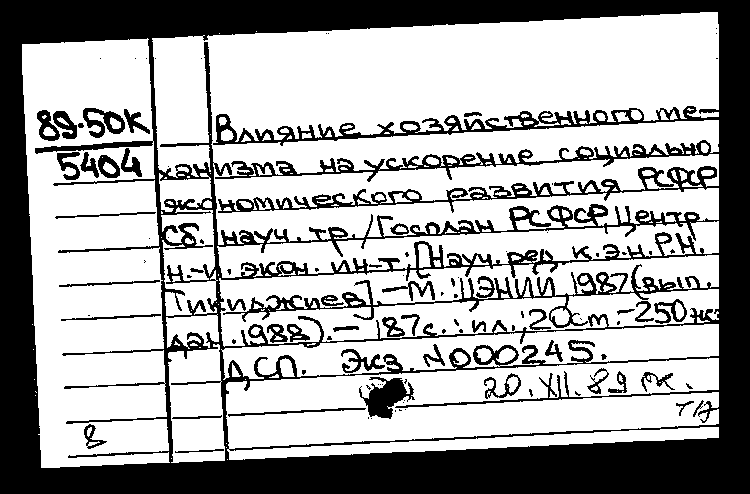 89-50К
5404
Влияние хозяйственного ме-
ханизма на ускорение социально
экономического развития РСФСР
Сб. науч. тр. / Госплан РСФСР, Центр.
н.-и. экон. ин-т; [Науч. ред. к.э.н. Р.Н.
Тикиджиев]. - М.: ЦЭНИИ, 1987 (вып.
дан. 1988). - 187 с.: ил.; 20 см. - 250 экз
ДСП. Экз. N000245.
20. XII. 89
8